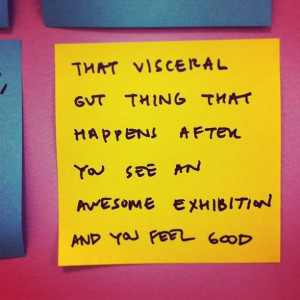 THAT VISCERAL
GUT THING THAT
HAPPENS AFTER
YOU SEE AN
AWESOME EXHIBITION
AND YOU FEEL GOOD